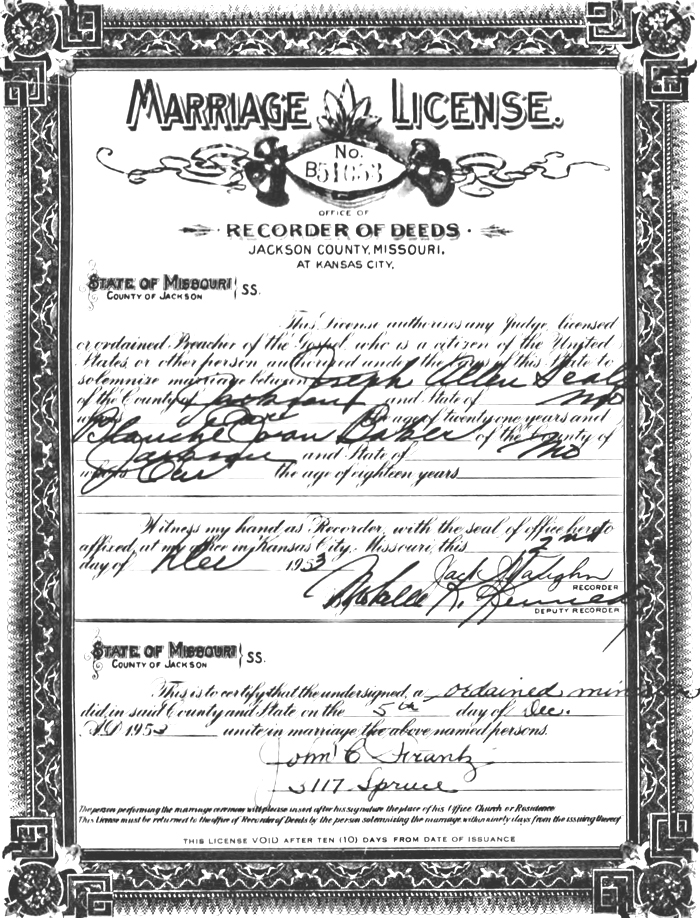 MARRIAGE LICENSE.
No.
B51653
OFFICE OF
RECORDER OF DEEDS.
JACKSON COUNTY, MISSOURI,
AT KANSAS CITY,
STATE OF MISSOURI
COUNTY OF JACKSON } SS.
This License authorises any Judge, licensed
or ordained Preacher of the Gospel, who is a citizen of the United
States, or other person authorized under the laws of this State to
solemnize marriage between Joseph Allen
of the County of Jackson and State of Mo
who is over the age of twenty one years and
Blanche Joan Baker of the County of
Jackson and State of Mo
who is over the age of eighteen years
Witness my hand as Recorder, with the seal of office hereto
affixed, at my office in Kansas City, Missouri, this 2nd
day of Dec 1953
Jack Vaughn
RECORDER
K. Kennedy
DEPUTY RECORDER
STATE OF MISSOURI
COUNTY OF JACKSON } SS.
This is to certify that the undersigned, a ordained minister
did, in said County and State on the 5th day of Dec.
A.D. 1953 unite in marriage the above named persons.
John C Frantz
5117 Spruce
The person performing the marriage ceremony will please insert after his signature the place of his Office Church or Residence
This License must be returned to the office of Recorder of Deeds by the person solemnizing the marriage within ninety days from the issuing thereof
THIS LICENSE VOID AFTER TEN (10) DAYS FROM DATE OF ISSUANCE